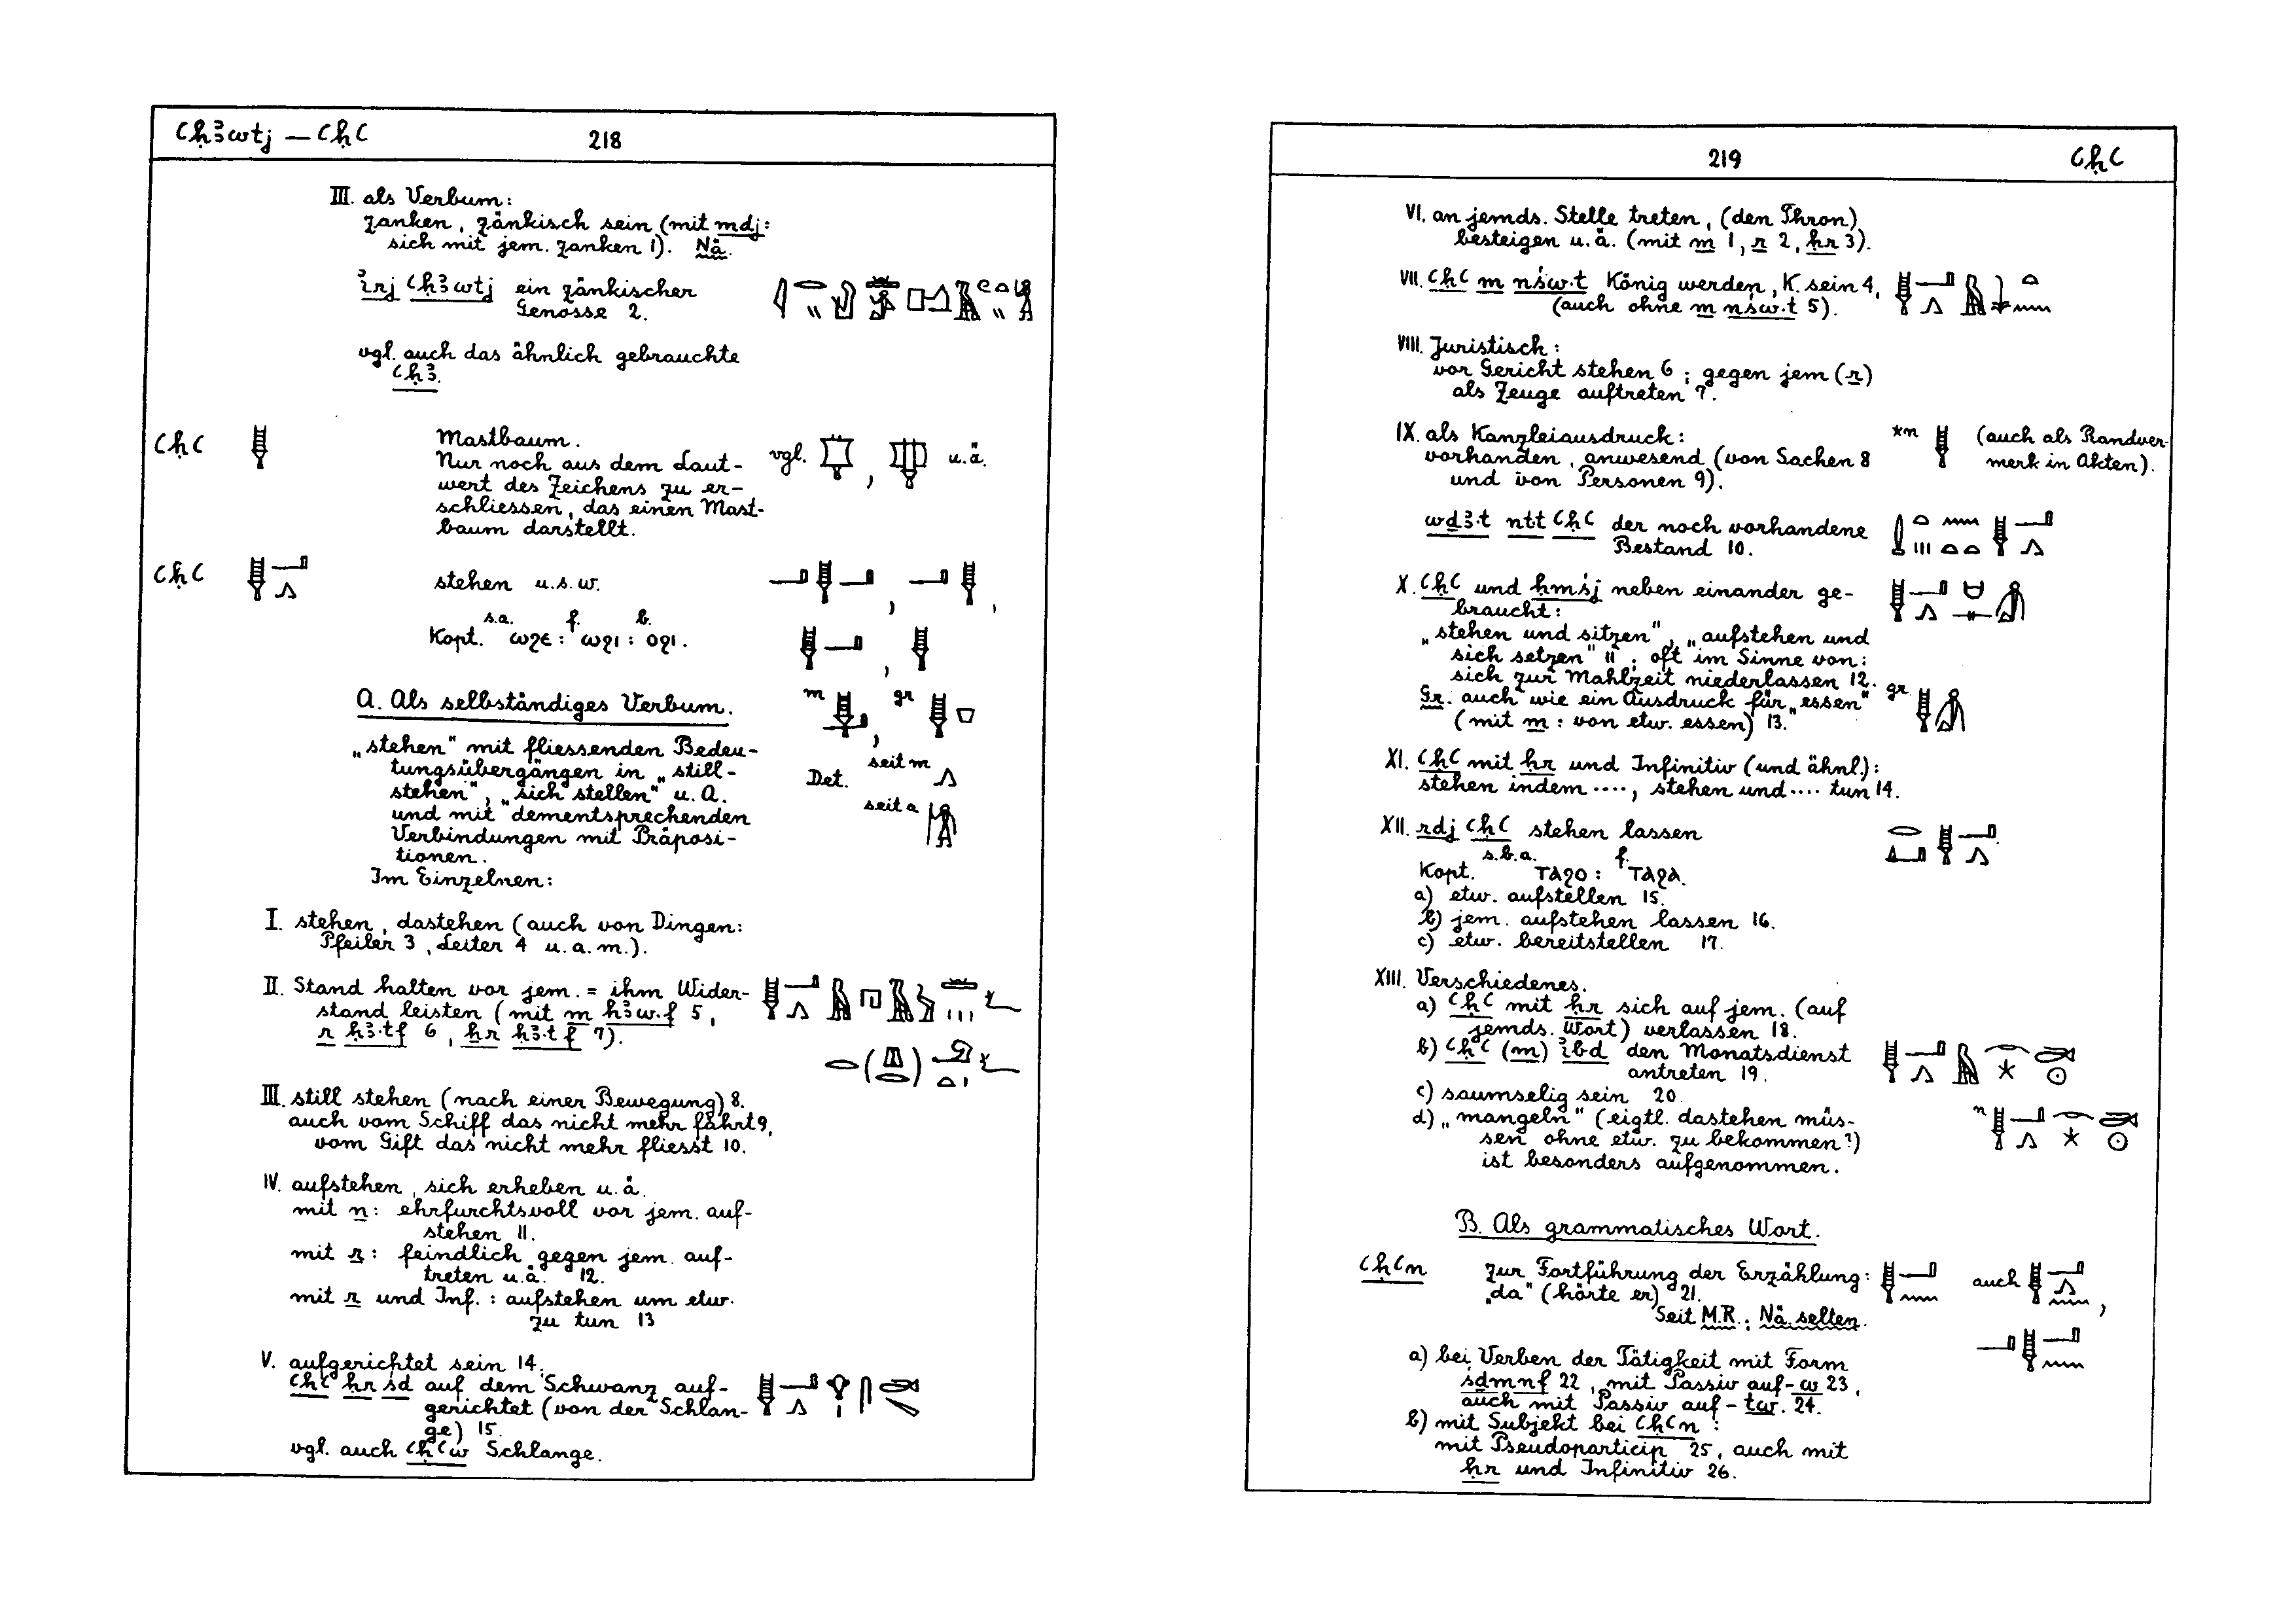 Ꜥḥꜣwtj — ꜤḥꜤ 218
III. als Verbum:
zanken, zänkisch sein (mit mdj:
sich mit jem. zanken 1). Nä.
ꞽrj Ꜥḥꜣwtj ein zänkischer
Genosse 2.
vgl. auch das ähnlich gebrauchte
Ꜥḥꜣ.
ꜤḥꜤ Mastbaum.
Nur noch aus dem Laut- vgl. , u.ä.
wert des Zeichens zu er-
schliessen, das einen Mast-
baum darstellt.
ꜤḥꜤ stehen u.s.w.
s.a. f. b.
Kopt. ⲱϩⲉ : ⲱϩⲓ : ⲟϩⲓ.
A. Als selbständiges Verbum. m gr
„stehen" mit fliessenden Bedeu-
tungsübergängen in „still- Det. seit m
stehen", „sich stellen" u. A. seit a
und mit dementsprechenden
Verbindungen mit Präposi-
tionen.
Im Einzelnen:
I. stehen, dastehen (auch von Dingen:
Pfeiler 3, Leiter 4 u.a.m.).
II. Stand halten vor jem. = ihm Wider-
stand leisten (mit m hꜣw.f 5,
r ḥꜣ.tf 6, ḥr ḥꜣ.tf 7).
III. still stehen (nach einer Bewegung) 8.
auch vom Schiff das nicht mehr fährt 9,
vom Gift das nicht mehr fliesst 10.
IV. aufstehen, sich erheben u.ä.
mit n: ehrfurchtsvoll vor jem. auf-
stehen 11.
mit r: feindlich gegen jem. auf-
treten u.ä. 12.
mit r und Inf.: aufstehen um etw.
zu tun 13
V. aufgerichtet sein 14.
ꜤḥꜤ ḥr śd auf dem Schwanz auf-
gerichtet (von der Schlan-
ge) 15.
vgl. auch ꜤḥꜤw Schlange.
219 ꜤḥꜤ
VI. an jemds. Stelle treten, (den Thron)
besteigen u.ä. (mit m 1, r 2, ḥr 3).
VII. ꜤḥꜤ m nśw.t König werden, K. sein 4,
(auch ohne m nśw.t 5).
VIII. Juristisch:
vor Gericht stehen 6; gegen jem (r)
als Zeuge auftreten 7.
IX. als Kanzleiausdruck: *n (auch als Randver-
vorhanden, anwesend (von Sachen 8 merk in Akten).
und von Personen 9).
wḏꜣ.t ntt ꜤḥꜤ der noch vorhandene
Bestand 10.
X. ꜤḥꜤ und ḥmśj neben einander ge-
braucht:
„stehen und sitzen", „aufstehen und
sich setzen" 11; oft im Sinne von:
sich zur Mahlzeit niederlassen 12.
Gr. auch wie ein Ausdruck für „essen" gr
(mit m: von etw. essen) 13.
XI. ꜤḥꜤ mit ḥr und Infinitiv (und ähnl.):
stehen indem ...., stehen und .... tun 14.
XII. rdj ꜤḥꜤ stehen lassen
s.b.a. f.
Kopt. ⲧⲁϩⲟ : ⲧⲁϩⲁ.
a) etw. aufstellen 15.
b) jem. aufstehen lassen 16.
c) etw. bereitstellen 17.
XIII. Verschiedenes.
a) ꜤḥꜤ mit ḥr sich auf jem. (auf
jemds. Wort) verlassen 18.
b) ꜤḥꜤ (m) ꞽbd den Monatsdienst
antreten 19.
c) saumselig sein 20.
d) „mangeln" (eigtl. dastehen müs- n
sen ohne etw. zu bekommen?)
ist besonders aufgenommen.
B. Als grammatisches Wort.
ꜤḥꜤn zur Fortführung der Erzählung: auch
„da" (hörte er) 21.
Seit M.R.; Nä. selten.
a) bei Verben der Tätigkeit mit Form
śḏmnf 22, mit Passiv auf -w 23,
auch mit Passiv auf -tw. 24.
b) mit Subjekt bei ꜤḥꜤn:
mit Pseudoparticip 25, auch mit
ḥr und Infinitiv 26.